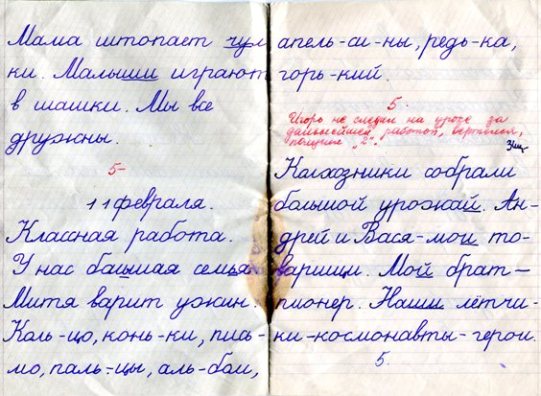 Мама штопает чул
ки. Малыши играют
в шашки. Мы все
дружны.
5-
11 февраля.
Классная работа.
У нас семья
Митя варит ужин.
Коль-цо, конь-ки, пись-
мо, паль-цы, аль-бом,
апель-си-ны, редь-ка,
горь-кий.
5.
Игорь не следил на уроке за
дальнейшей работой, вертелся,
получил „2".
Колхозники собрали
большой урожай. Ан-
дрей и Вася-мои то-
варищи. Мой брат —
пионер. Наши лётчи-
ки-космонавты-герои.
5.